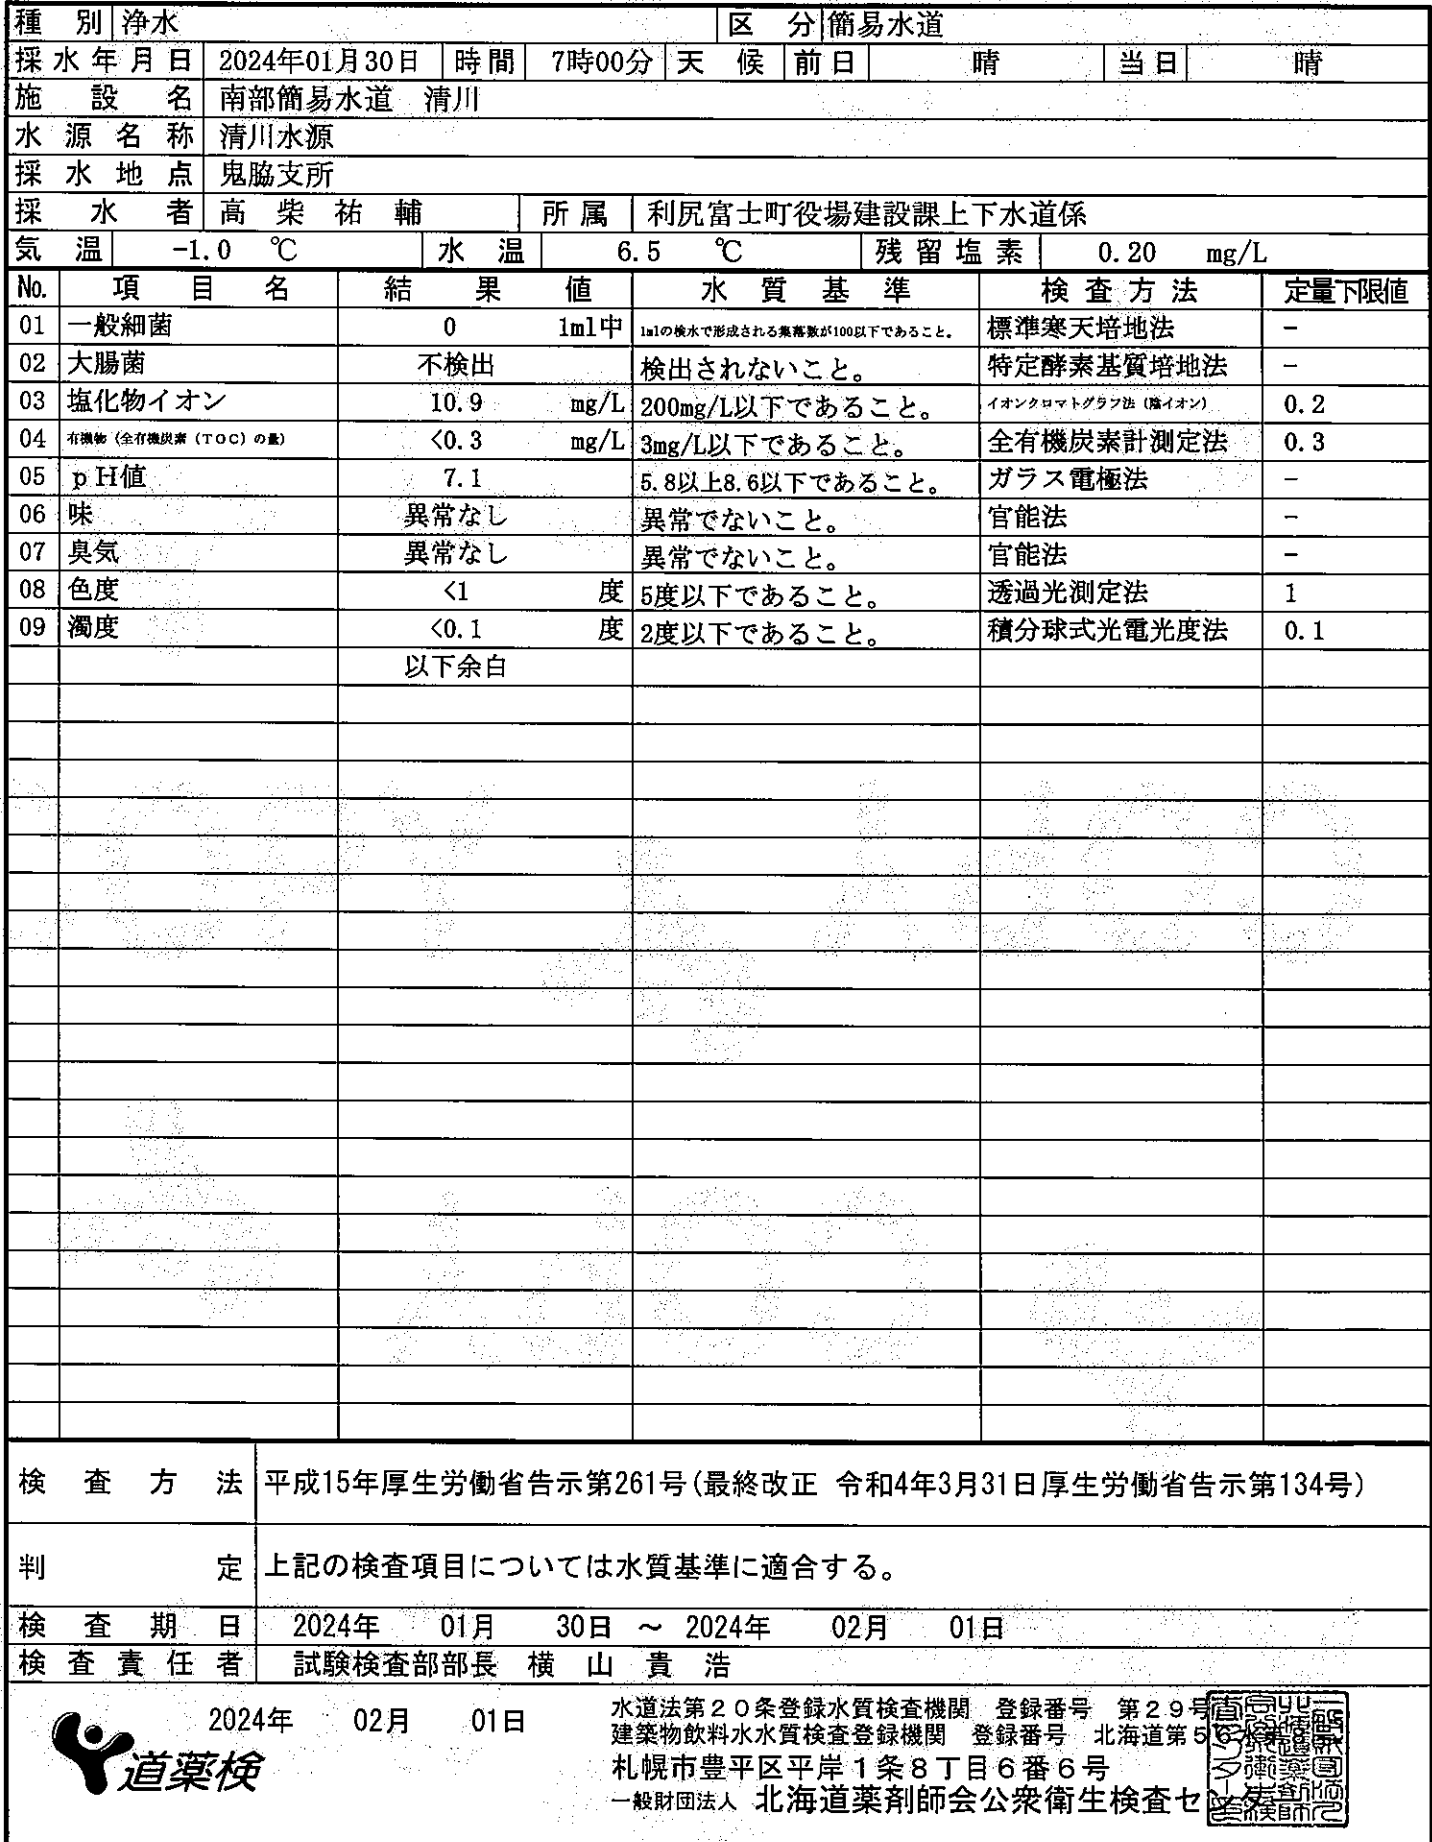 種 別 浄水 区 分 簡易水道
採水年月日 2024年01月30日 時間 7時00分 天 候 前日 晴 当日 晴
施 設 名 南部簡易水道 清川
水 源 名 称 清川水源
採 水 地 点 鬼脇支所
採 水 者 高 柴 祐 輔 所属 利尻富士町役場建設課上下水道係
気 温 -1.0 ℃ 水 温 6.5 ℃ 残留塩素 0.20 mg/L
No. 項 目 名 結 果 値 水 質 基 準 検査方法 定量下限値
01 一般細菌 0 1ml中 1mlの検水で形成される集落数が100以下であること。 標準寒天培地法 -
02 大腸菌 不検出 検出されないこと。 特定酵素基質培地法 -
03 塩化物イオン 10.9 mg/L 200mg/L以下であること。 イオンクロマトグラフ法（陰イオン） 0.2
04 有機物（全有機炭素（TOC）の量） <0.3 mg/L 3mg/L以下であること。 全有機炭素計測定法 0.3
05 pH値 7.1 5.8以上8.6以下であること。 ガラス電極法 -
06 味 異常なし 異常でないこと。 官能法 -
07 臭気 異常なし 異常でないこと。 官能法 -
08 色度 <1 度 5度以下であること。 透過光測定法 1
09 濁度 <0.1 度 2度以下であること。 積分球式光電光度法 0.1
以下余白
検 査 方 法 平成15年厚生労働省告示第261号(最終改正 令和4年3月31日厚生労働省告示第134号)
判 定 上記の検査項目については水質基準に適合する。
検 査 期 日 2024年 01月 30日 ～ 2024年 02月 01日
検査責任者 試験検査部部長 横 山 貴 浩
2024年 02月 01日
道薬検
水道法第２０条登録水質検査機関 登録番号 第２９号
建築物飲料水水質検査登録機関 登録番号 北海道第５６水第
札幌市豊平区平岸１条８丁目６番６号
一般財団法人 北海道薬剤師会公衆衛生検査センター